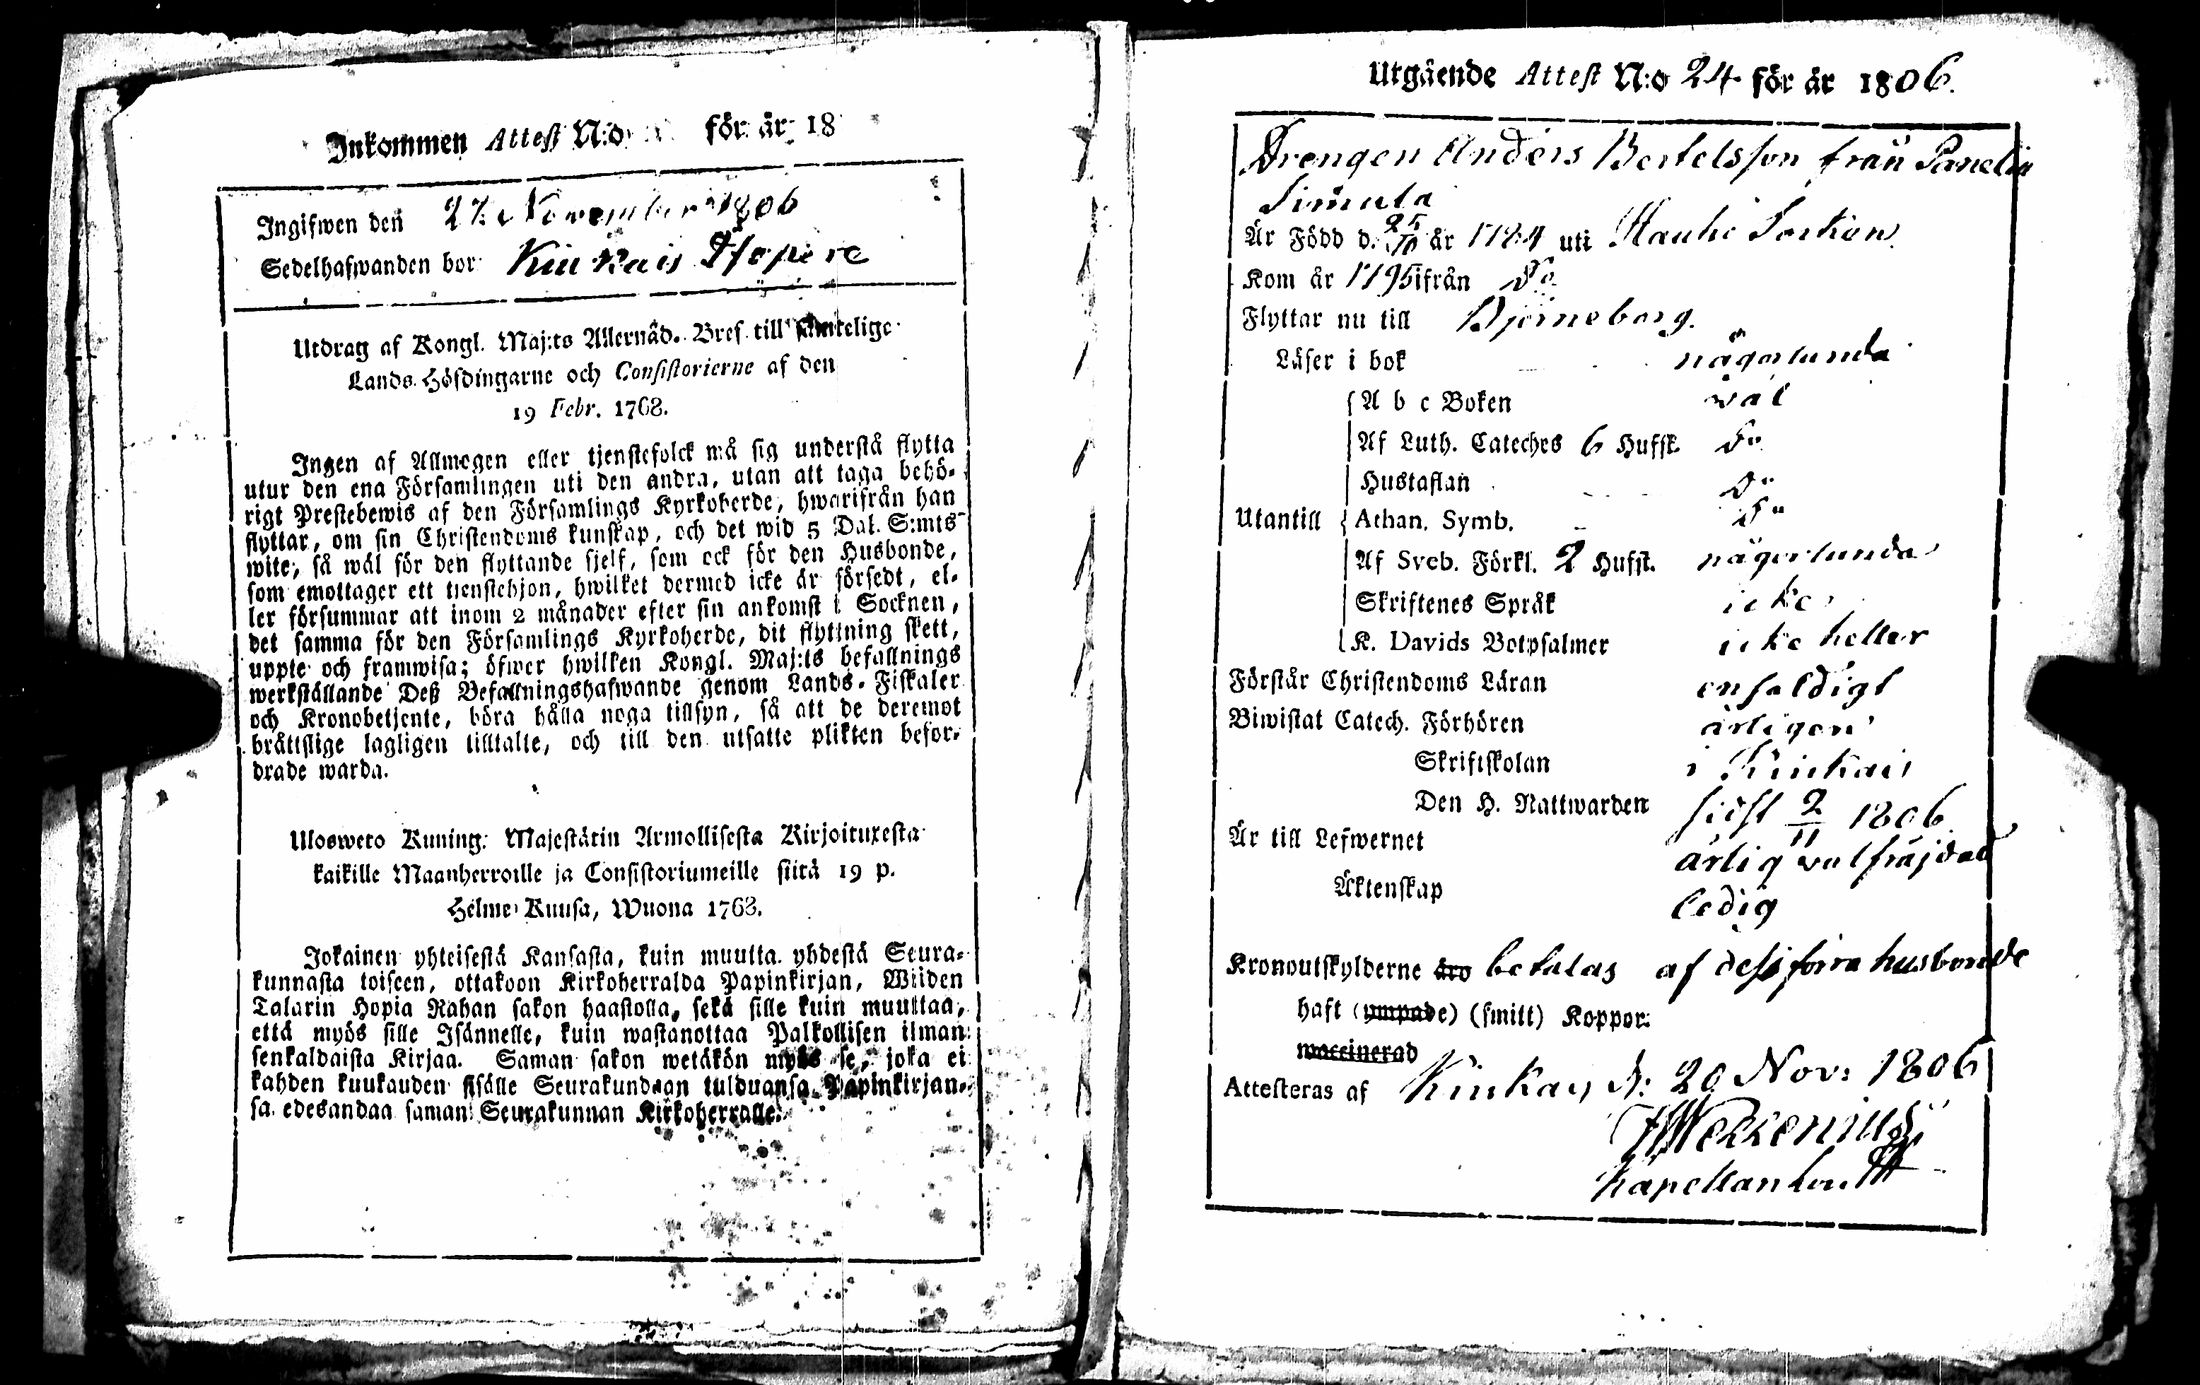 Inkommen Attest N:o för år 18
Ingifwen den 27 November 1806
Sedelhafwanden bor Kiukais
Utdrag af Kongl. Maj:ts Allernåd. Bref till samtelige
Lands-Höfdingarne och Consistorierne af den
19 Febr. 1768.
Ingen af Allmogen eller tjenstefolck må sig understå flytta
utur den ena Församlingen uti den andra, utan att taga behö-
rigt Prestebewis af den Församlings Kyrkoherde, hwarifrån han
flyttar, om sin Christendoms kunskap, och det wid 5 Dal. S:mts
wite, så wäl för den flyttande sjelf, som ock för den Husbonde,
som emottager ett tienstehjon, hwilket dermed icke är försedt, el-
ler försummar att inom 2 månader efter sin ankomst i Socknen,
det samma för den Församlings Kyrkoherde, dit flyttning skett,
uppte och framwisa; öfwer hwilken Kongl. Maj:ts befallnings
werkställande Deß Befallningshafwande genom Lands-Fiskaler
och Kronobetjente, böra hålla noga tillsyn, så att de deremot
bråttslige lagligen tilltalte, och till den utsatte plikten befor-
drade warda.
Uloswero Kuning: Majestätin Armollisesta Kirjoituxesta
kaikille Maanherroille ja Consistoriumeille siitä 19 p.
Helme Kuusa, Wuona 1768.
Jokainen yhteisestä Kansasta, kuin muutta yhdestä Seura-
kunnasta toiseen, ottakoon Kirkoherralda Papinkirjan, Wiiden
Talarin Hopia Rahan sakon haastolla, sekä sille kuin muuttaa,
että myös sille Isännelle, kuin wastanottaa Palkollisen ilman
senkaldaista Kirjaa. Saman sakon wetäkön myös se, joka ei
kahden kuukauden sisälle Seurakundaan tulduansa Papinkirjan-
sa edesandaa saman Seurakunnan Kirkoherralle.
Utgående Attest N:o 24 för år 1806.
Drengen Anders Bertelsson från Panelia
Simula
Är Född d. 25/10 år 1784 uti Hauhi Sockn
Kom år 1795 ifrån Do
Flyttar nu till Björneborg.
Läser i bok någorlunda
A b c Boken wäl
Af Luth. Cateches 6 Hufst. Do
Hustaflan Do
Utantill Athan. Symb. Do
Af Sveb. Förkl. 2 Hufst. någorlunda
Skriftenes Språk icke
K. Davids Botpsalmer icke heller
Förstår Christendoms Läran enfaldigt
Biwistat Catech. Förhören årligen
Skriftskolan i Kiukais
Den H. Nattwarden sidst 2/11 1806
Är till Lefwernet ärlig wälfräjdad
Äktenskap ledig
Kronoutskylderne äro betalas af dess förra husbonde
haft (ympade) (smitt) Koppor:
waccinerad
Attesteras af Kiukais d: 20 Nov: 1806
Kapellan